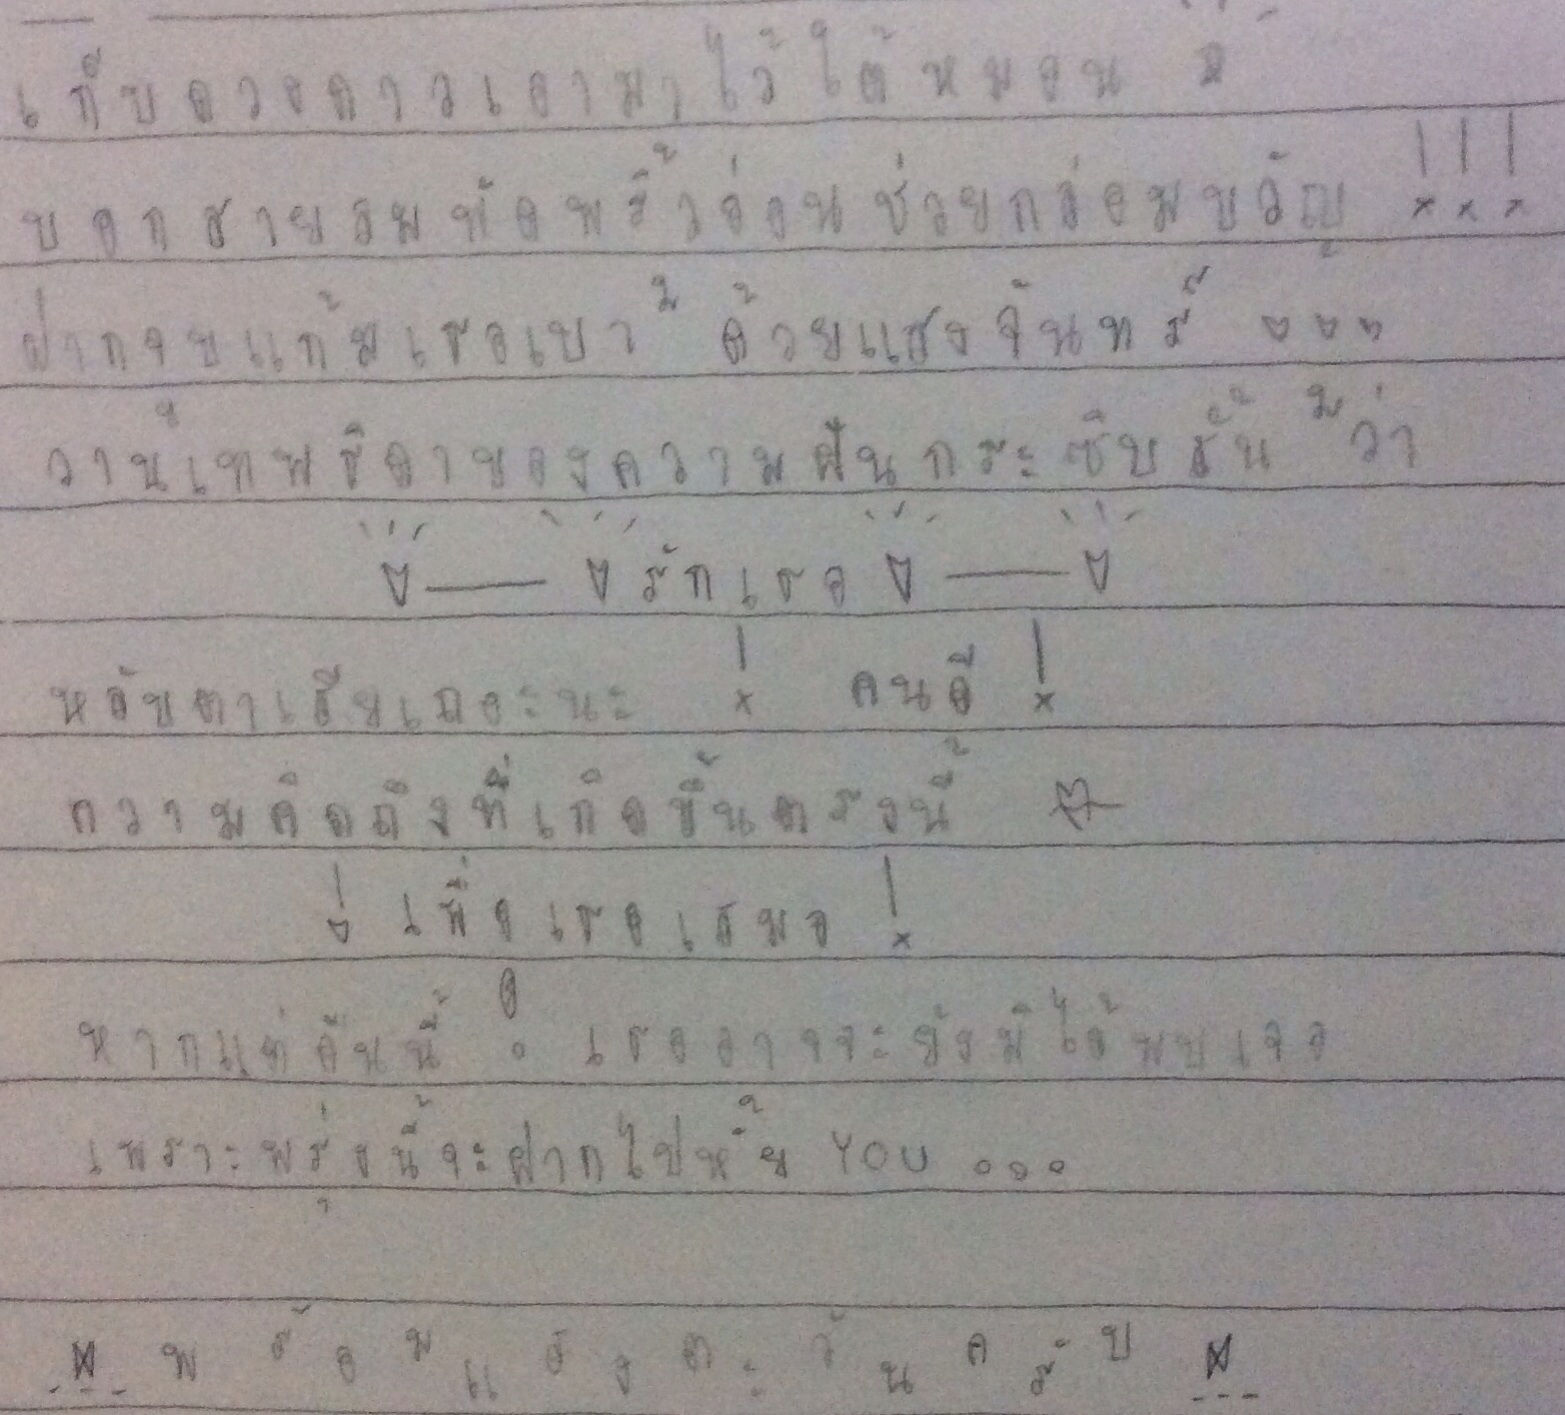 เก็บดวงดาวเอามาไว้ใต้หมอน
บอกสายลมพัดพริ้วอ่อนช่วยกล่อมขวัญ !!!
ฝากจูบแก้มเธอเบา ๆ ด้วยแสงจันทร์ ...
วานเทพธิดาของความฝันกระซิบสั้น ๆ ว่า
♥ — ♥ รักเธอ ♥ — ♥
หลับตาเสียเถอะนะ ! คนดี !
ความคิดถึงที่เกิดขึ้นตรงนี้ ☆
! เพื่อเธอเสมอ !
หากแต่คืนนี้ เธออาจจะยังมิได้พบเจอ
เพราะพรุ่งนี้จะฝากไปหั้ย YOU ...
พร้อมแสงตะวันครับ